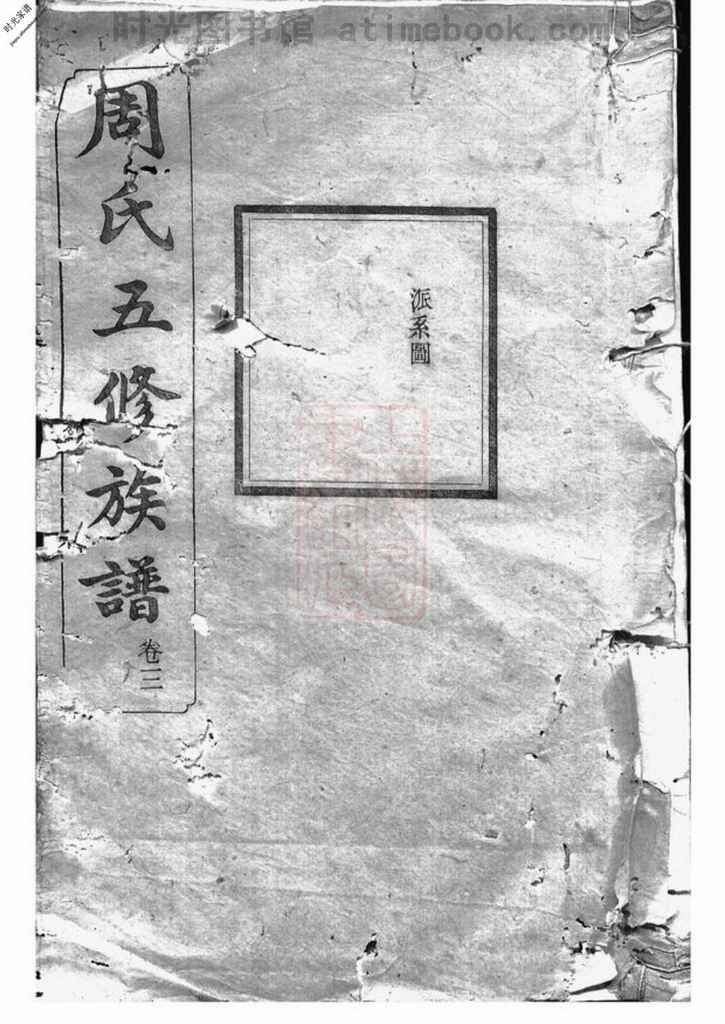 时光图书馆 atimebook.com
时光家谱
周氏五修族譜 卷三
派系圖